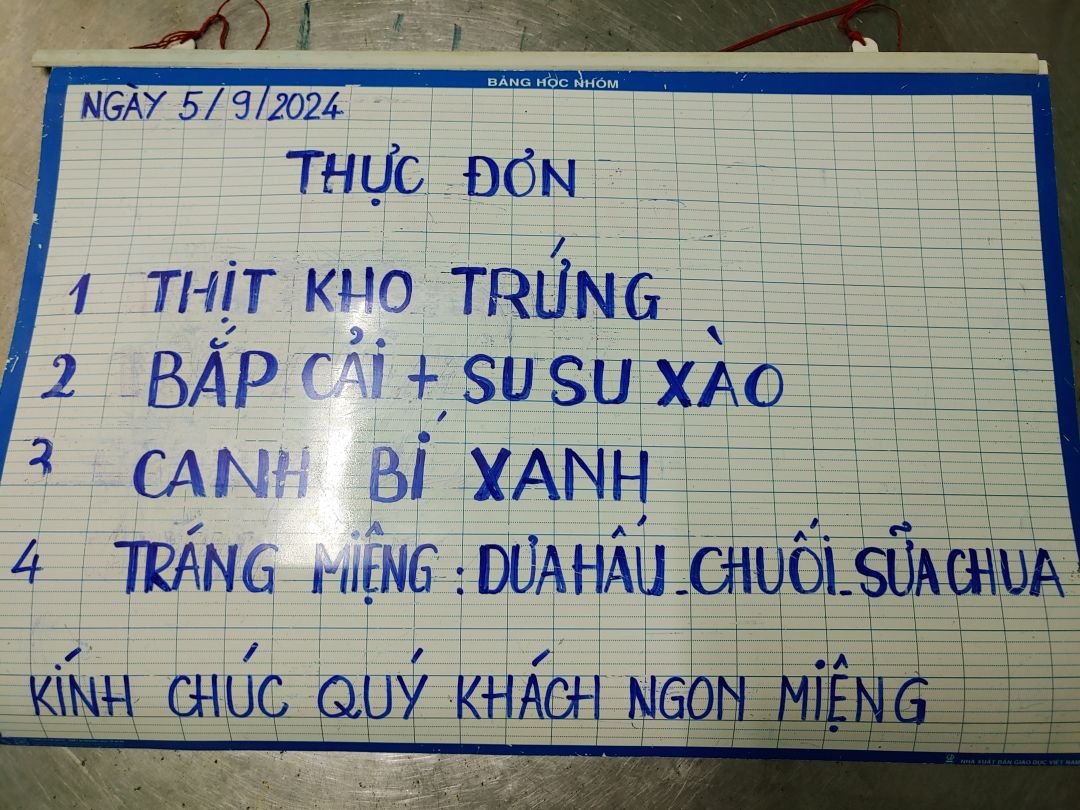 BẢNG HỌC NHÓM
NGÀY 5/9/2024
THỰC ĐƠN
1 THỊT KHO TRỨNG
2 BẮP CẢI + SU SU XÀO
3 CANH BÍ XANH
4 TRÁNG MIỆNG : DƯA HẤU - CHUỐI - SỮA CHUA
KÍNH CHÚC QUÝ KHÁCH NGON MIỆNG
NHÀ XUẤT BẢN GIÁO DỤC VIỆT NAM